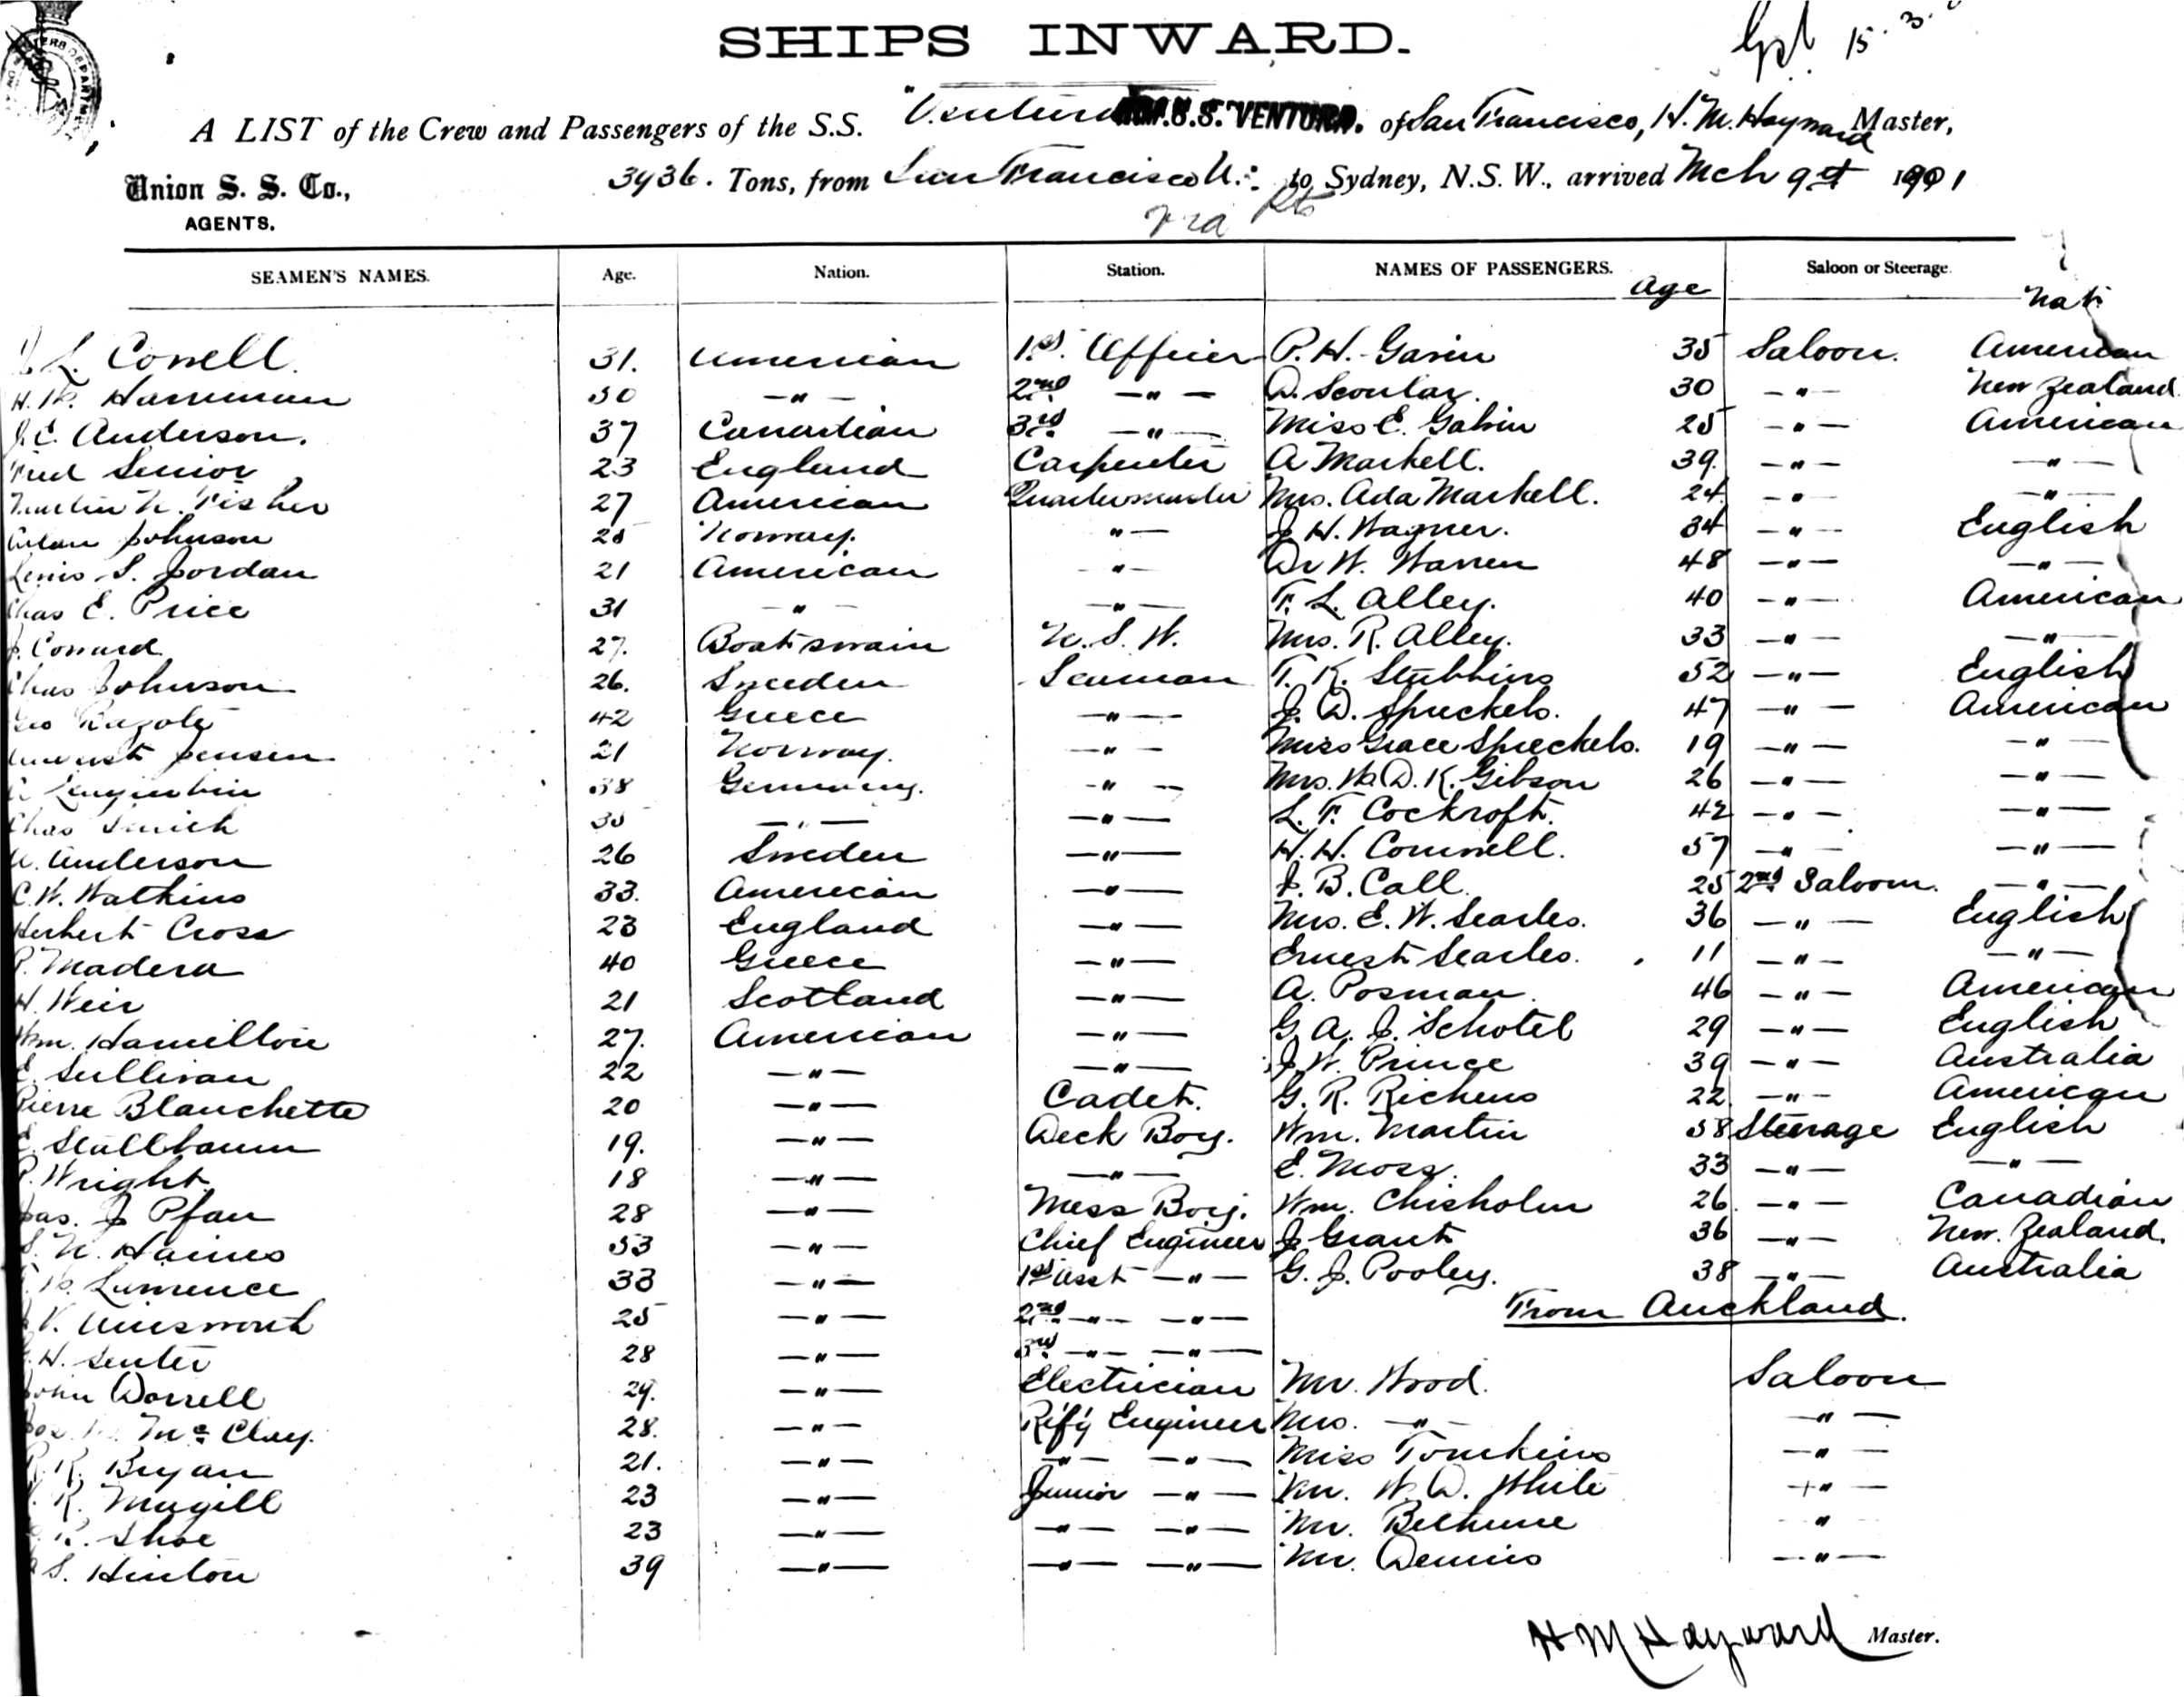 SHIPS INWARD.
15. 3.
A LIST of the Crew and Passengers of the S.S. "Ventura R.M.S.S. VENTURA. of San Francisco, H. M. Hayward Master,
Union S. S. Co., 3936. Tons, from San Francisco to Sydney, N.S.W., arrived Mch 9th 1901
AGENTS. via
SEAMEN'S NAMES. Age. Nation. Station. NAMES OF PASSENGERS. Age Saloon or Steerage. Nat
L. Correll. 31. American 1st Officer P. H. Gavin 35 Saloon. American
H. Harriman 30 —"— 2nd —"— D. Scoular. 30 —"— New Zealand.
J. C. Anderson. 37 Canadian 3rd —"— Miss E. Galvin 25 —"— American
Fred Senior 23 England Carpenter A Markell. 39. —"— —"—
Martin N. Fisher 27 American Quartermaster Mrs. Ada Markell. 24 —"— —"—
Johnson 25 Norway. "— J. H. Wagner. 34 —"— English
Lewis S. Jordan 21 American —"— Dr W. Warren 48 —"— —"—
Chas E. Price 31 —"— —"— F. L. Alley. 40 —"— American
J. Conrad 27. Boatswain N. S. W. Mrs. R. Alley. 33 —"— —"—
Chas Johnson 26. Sweden Seaman F. K. Stubbins 52 —"— English
Geo 42 Greece —"— J. D. Spreckels. 47 —"— American
August Jensen 21 Norway. —"— Miss Grace Spreckels. 19 —"— —"—
38 Germany. —"— Mrs. W. D. K. Gibson 26 —"— —"—
Chas 35 —"— —"— L. F. Cockroft. 42 —"— —"—
A. Anderson 26 Sweden —"— H. H. Connell. 57 —"— —"—
C. W. Watkins 33. American —"— J. B. Call 25 2nd Saloon. —"—
Herbert Cross 23 England —"— Mrs. E. W. Searles. 36 —"— English
P. Madera 40 Greece —"— Ernest Searles. 11 —"— —"—
H. Weir 21 Scotland —"— A. Posman 46 —"— American
Wm. Hamilton 27. American —"— G. A. J. Schotel 29 —"— English
E. Sullivan 22 —"— —"— J. W. Prince 39 —"— Australia
Pierre Blanchette 20 —"— Cadet. G. R. Richens 22. —"— American
E. Stallbaum 19. —"— Deck Boy. Wm. Martin 58 Steerage English
P. Wright. 18 —"— —"— E. Moss. 33 —"— —"—
Jas. J Pfau 28 —"— Mess Boy. Wm. Chisholm 26. —"— Canadian
S. N. Haines 53 —"— Chief Engineer J Grant 36 —"— New Zealand.
Lawrence 33 —"— 1st Asst —"— G. J. Pooley. 38 —"— Australia
V. Ainsworth 25 —"— 2nd —"— —"— From Auckland.
H. Senter 28 —"— 3rd —"— —"—
John Dorrell 29. —"— Electrician Mr. Wood. Saloon
Jos. Mc Clay. 28. —"— Ref'g Engineer Mrs. —"— —"—
R. R. Bryan 21. —"— —"— —"— Miss Tomkins —"—
R. Magill 23 —"— Junior —"— Mr. W. D. White —"—
R. Shoe 23 —"— —"— —"— Mr. Bethune "
S. Hinton 39 —"— —"— —"— Mr. Dennis —"—
H M Hayward Master.